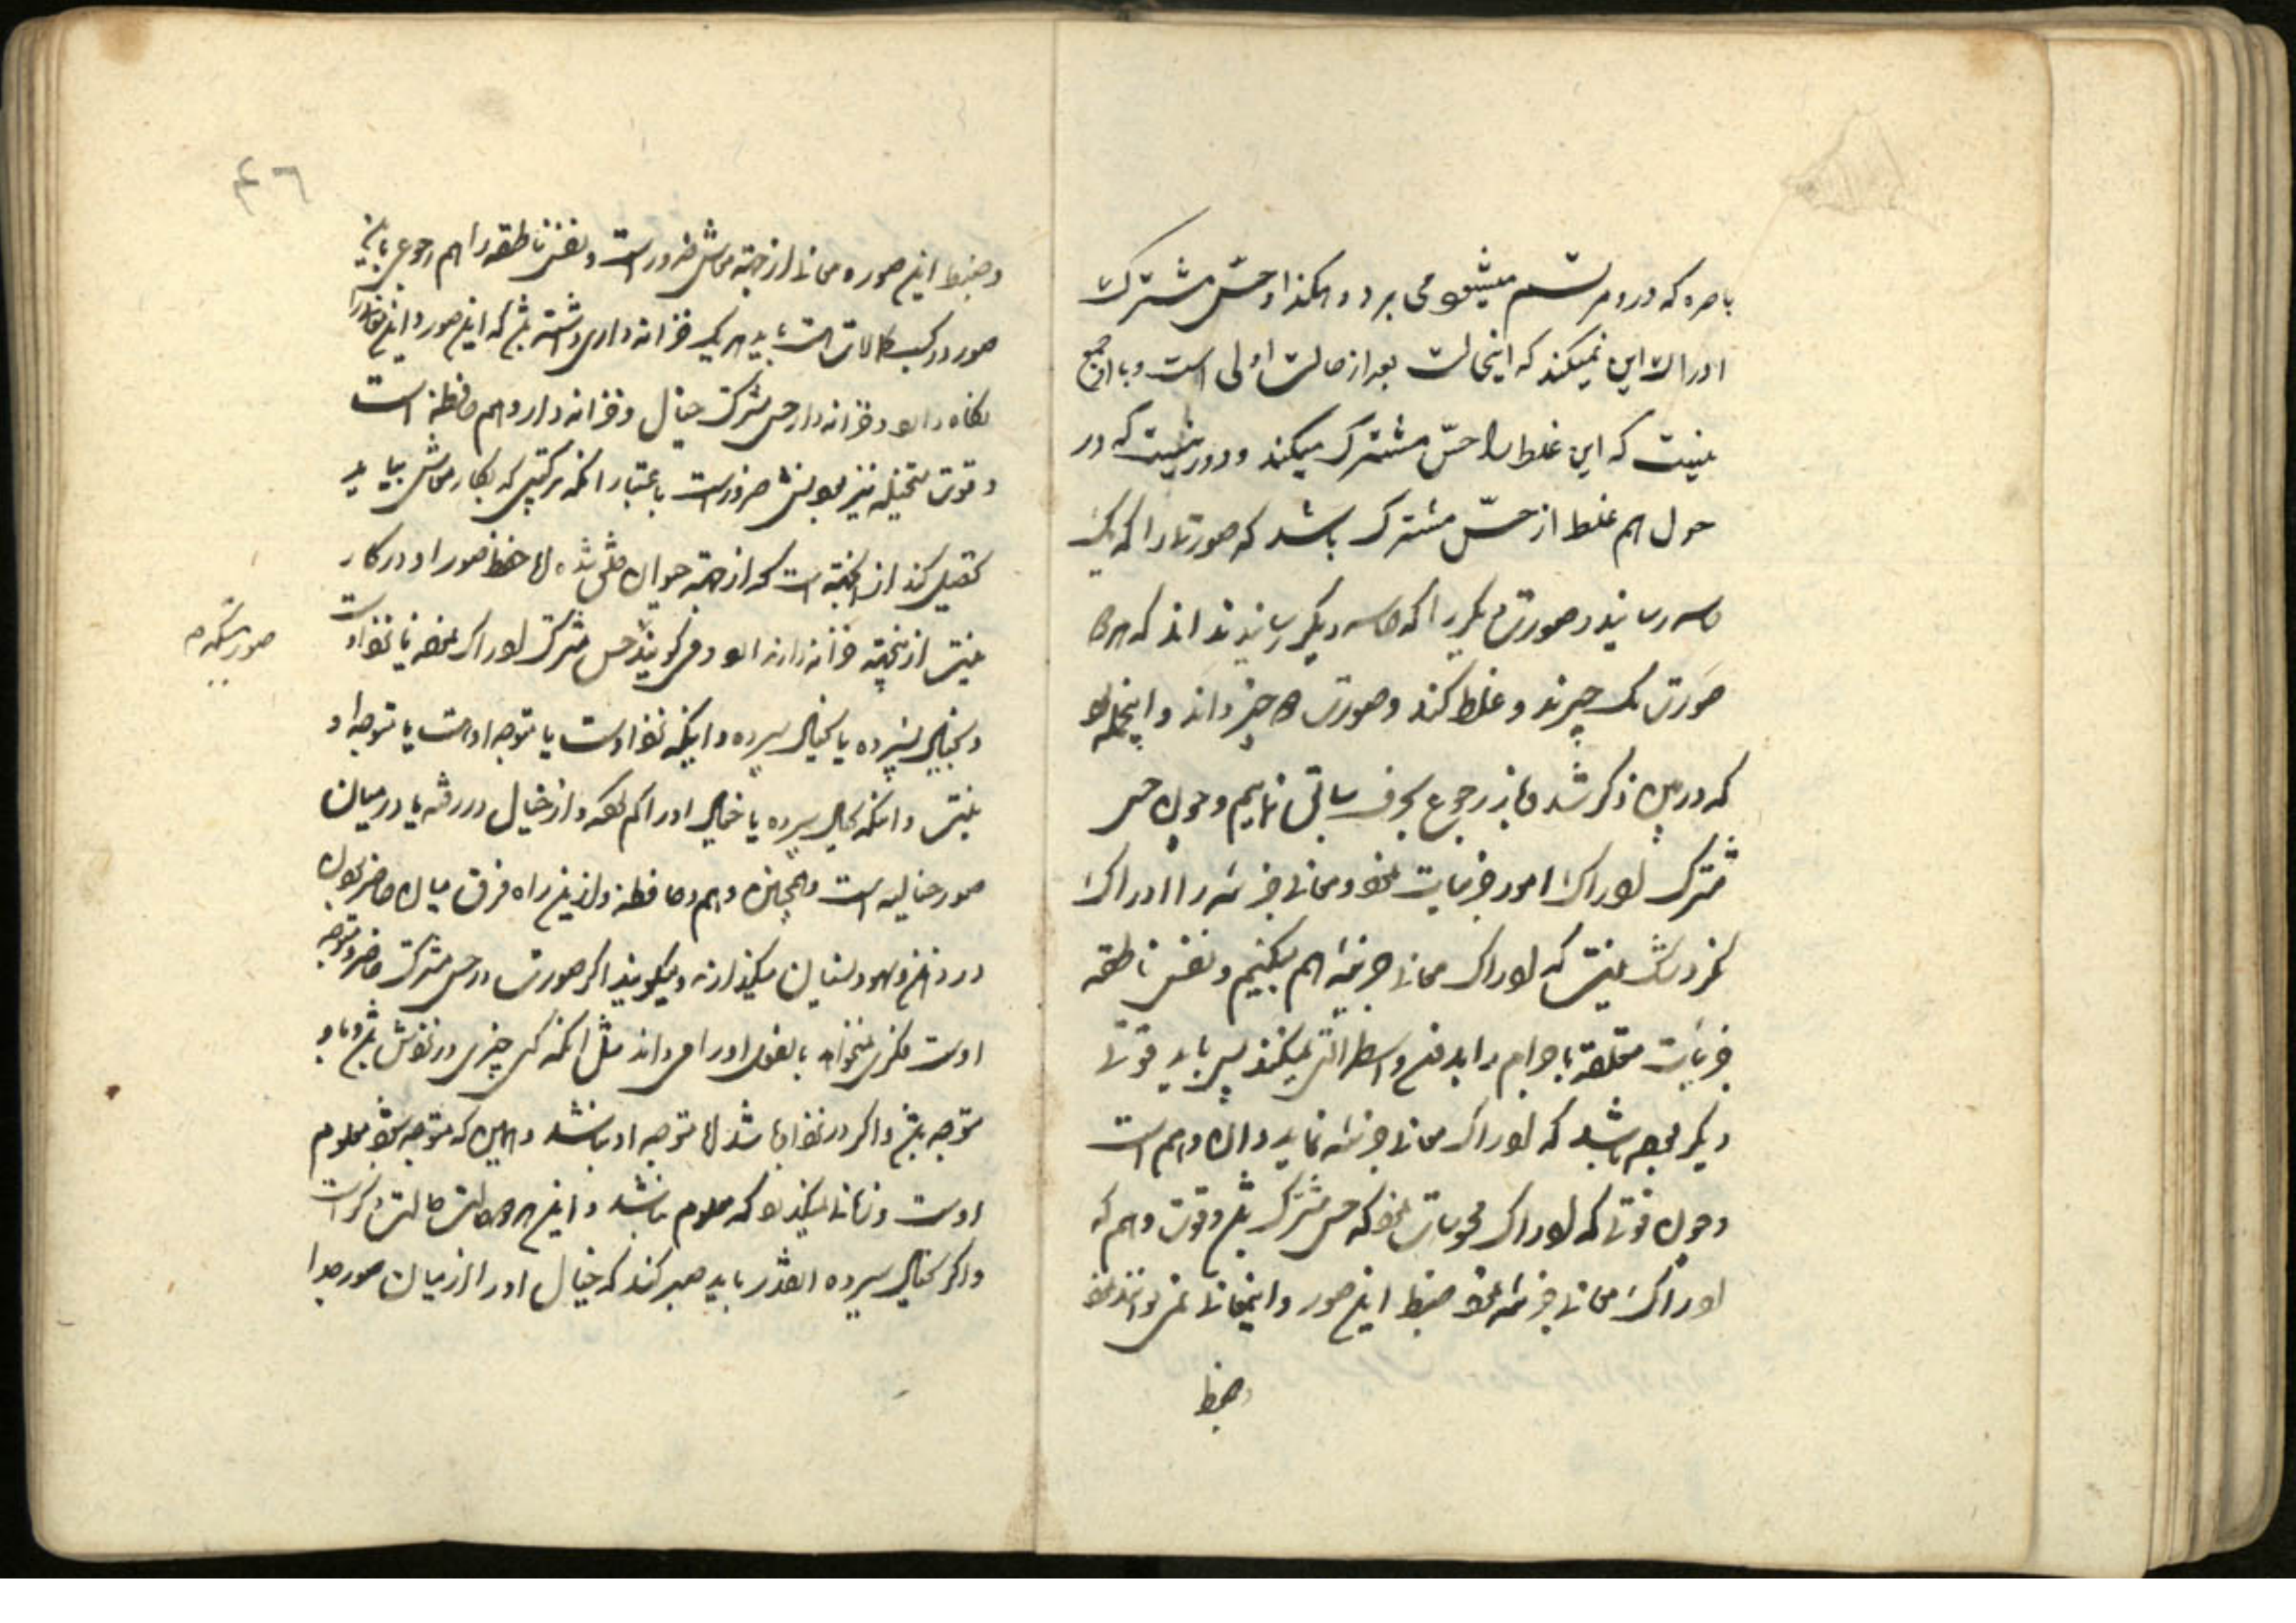 باصره که درو مرتسم میشود می برد و هکذا و حسّ مشترک
ادراک این نمیکند که اینحالت بعد از حالت اولی است و با او جمع
نیست که این غلط را حسّ مشترک میکند و دور نیست که در
حول هم غلط از حسّ مشترک باشد که صورتی را که یک
حاسه رسانید و صورت دیگر را که حاسه دیگر رسانیده اند که هر دو
صورت یک چیزند و غلط کند و صورت دو چیز داند و اینجمله بود
که در بین ذکر شد باز رجوع بحرف سابق نمائیم و چون حس
مشترک ادراک امور جزئیات نمود و معانی جزئیه را ادراک
کار او نیست که ادراک معانی جزئیه هم بکنیم و نفس ناطقه
جزئیات متعلقه باجرام را بدون واسطه التی نمیکند پس باید قوتی
دیگر بوده باشد که ادراک معانی جزئیه نماید و ان وهم است
و چون قوتی که ادراک محسوسات نمود که حس مشترک باشد و قوت وهم که
ادراک معانی جزئیه نمود ضبط این صور و اینمعانی نمی توانند نمود
و ضبط
٤٦
و ضبط این صور و معانی از جهة معاش ضرور است و نفس ناطقه را هم رجوعی باین
صور در کسب کمالات هست باید هر یک خزانه داری داشته باشد که این صور و این معانی را
نگاه دارد و خزانه دار حس مشترک خیال و خزانه دار وهم حافظه است
و قوت متخیله نیز بودنش ضرور است باعتبار انکه ترکیبی که بکار معاش بیاید
تحصیل کند از اینجهة است که از جهة حیوان خلق شده اما حفظ صور او در کار
نیست از اینجهة خزانه ندارد و فرق کویند حس مشترک ادراک نموده یا نزد اوست
صور متکثره
و بخیال نسپرده یا بخیال سپرده و اینکه نزد اوست یا توجه او هست یا توجه او
نیست و انکه بخیال سپرده یا خیال او را کم کرده و از خیال در رفته یا در میان
صور خیالیه است و همچنین وهم و حافظه و از این راه فرق میان حاضر بودن
در ذهن و سهو و نسیان میکذارند و میکویند اکر صورت در حس مشترک حاضر و متوجه
اوست فکری نمیخواهد بالفعل او را می داند مثل انکه کسی چیزی در نزدش باشد و باو
متوجه باشد و اکر در نزد او باشد اما توجه او نباشد و همین که متوجه شود معلوم
اوست و زمانی نمیکذرد که معلوم نباشد و این هر دو حالت حالت ذکر است
و اکر بخیال سپرده انقدر باید صبر کند که خیال او را از میان صور جدا